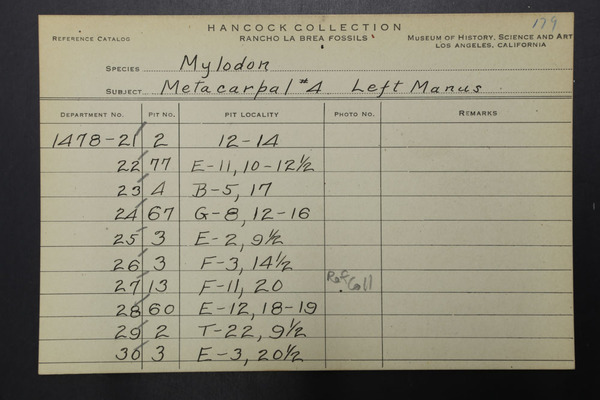 179
HANCOCK COLLECTION
REFERENCE CATALOG RANCHO LA BREA FOSSILS MUSEUM OF HISTORY, SCIENCE AND ART
LOS ANGELES, CALIFORNIA
SPECIES Mylodon
SUBJECT Metacarpal #4 Left Manus
DEPARTMENT NO. PIT NO. PIT LOCALITY PHOTO NO. REMARKS
1478-21 2 12-14
22 77 E-11, 10-12½
23 4 B-5, 17
24 67 G-8, 12-16
25 3 E-2, 9½
26 3 F-3, 14½
27 13 F-11, 20 Ref Coll
28 60 E-12, 18-19
29 2 T-22, 9½
30 3 E-3, 20½